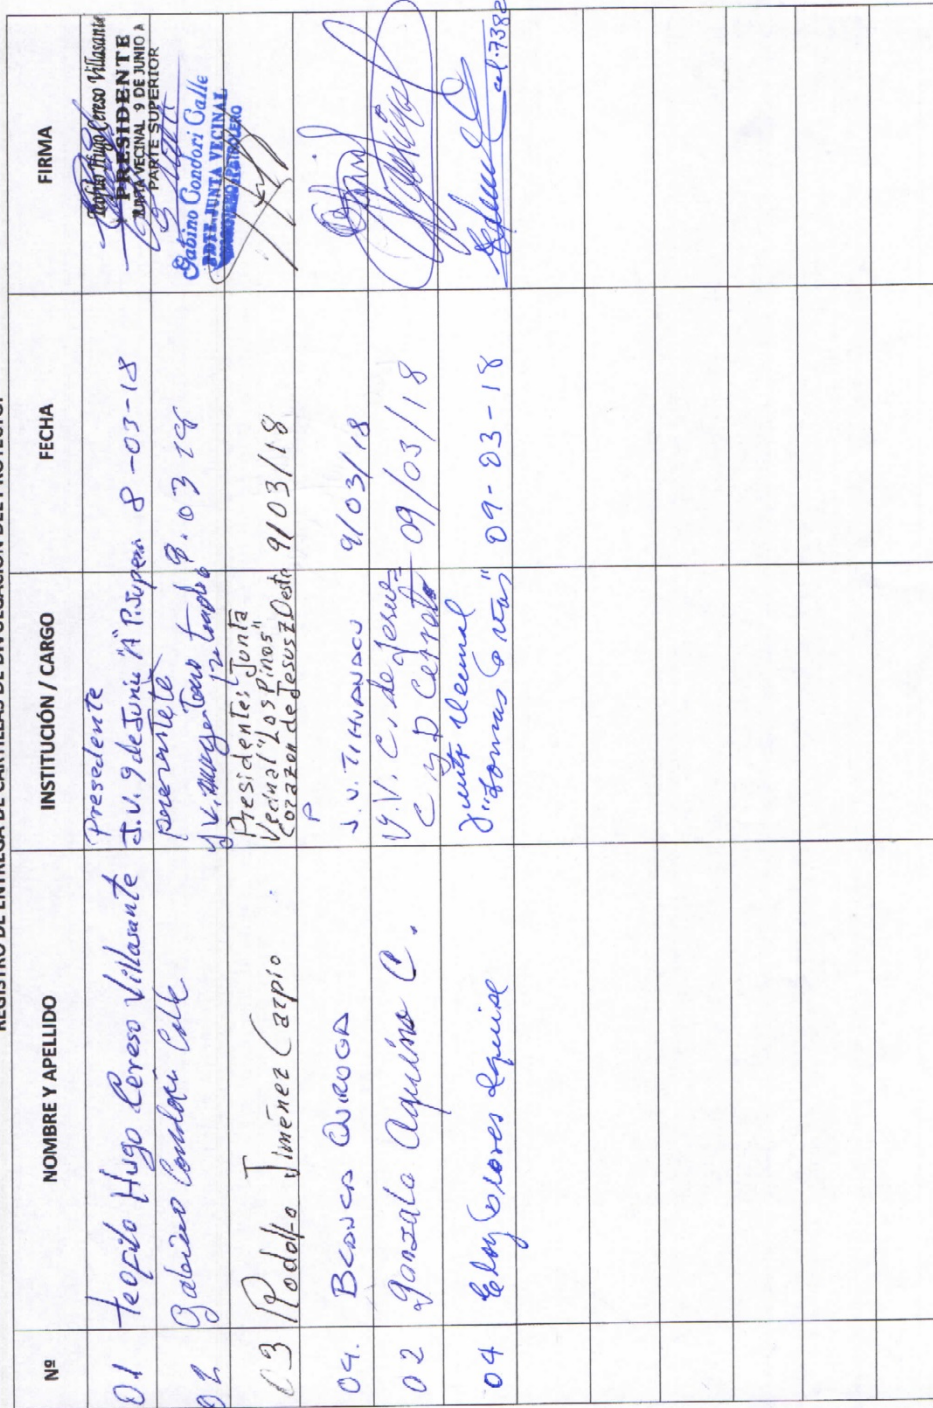 REGISTRO DE ENTREGA DE CARTILLAS DE DIVULGACIÓN DEL PROYECTO.
Nº NOMBRE Y APELLIDO INSTITUCIÓN / CARGO FECHA FIRMA
01 Teofilo Hugo Cereso Villasante Presedente
J.V. 9 de Junio "A" P. Superi. 8-03-18
Teofilo Hugo Cereso Villasante
PRESIDENTE
JUNTA VECINAL 9 DE JUNIO A
PARTE SUPERIOR
02 Gabino Condori Calle
8.03 18
Gabino Condori Calle
JUNTA VECINAL
03 Rodolfo Jiménez Carpio Presidentes Junta
Vecinal "Los Pinos"
Corazon de Jesus 7 Destn 9/03/18
04. BLANCA QUIROGA P
J.V. TIHUANACU 9/03/18
02 Gonzalo Aquino C. J.V. C. de Jesus
C y D 09/03/18
04 Eloy
Junta Vecinal 09-03-18
cel. 7382